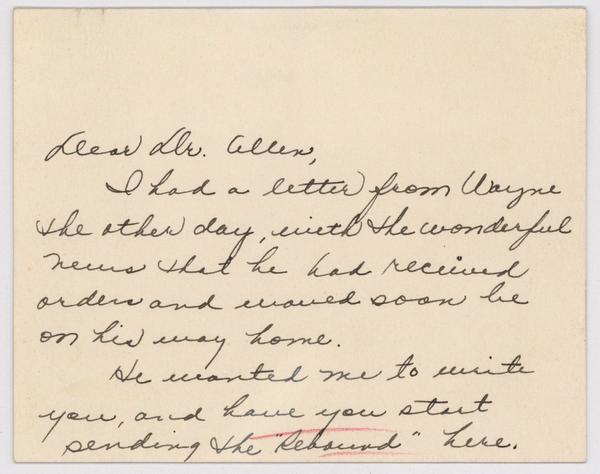 Dear Dr. Allen,
I had a letter from Wayne
the other day, with the wonderful
news that he had received
orders and would soon be
on his way home.
He wanted me to write
you, and have you start
sending the "Rebound" here.